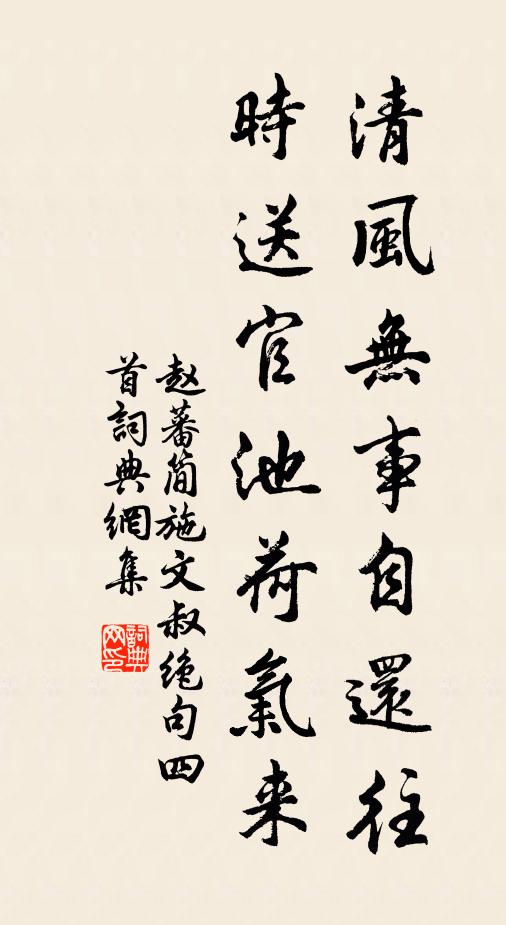 清風無事自還往
時送官池荷氣来
赵蕃简施文叔绝句四
首詞典網集
詞典
网印